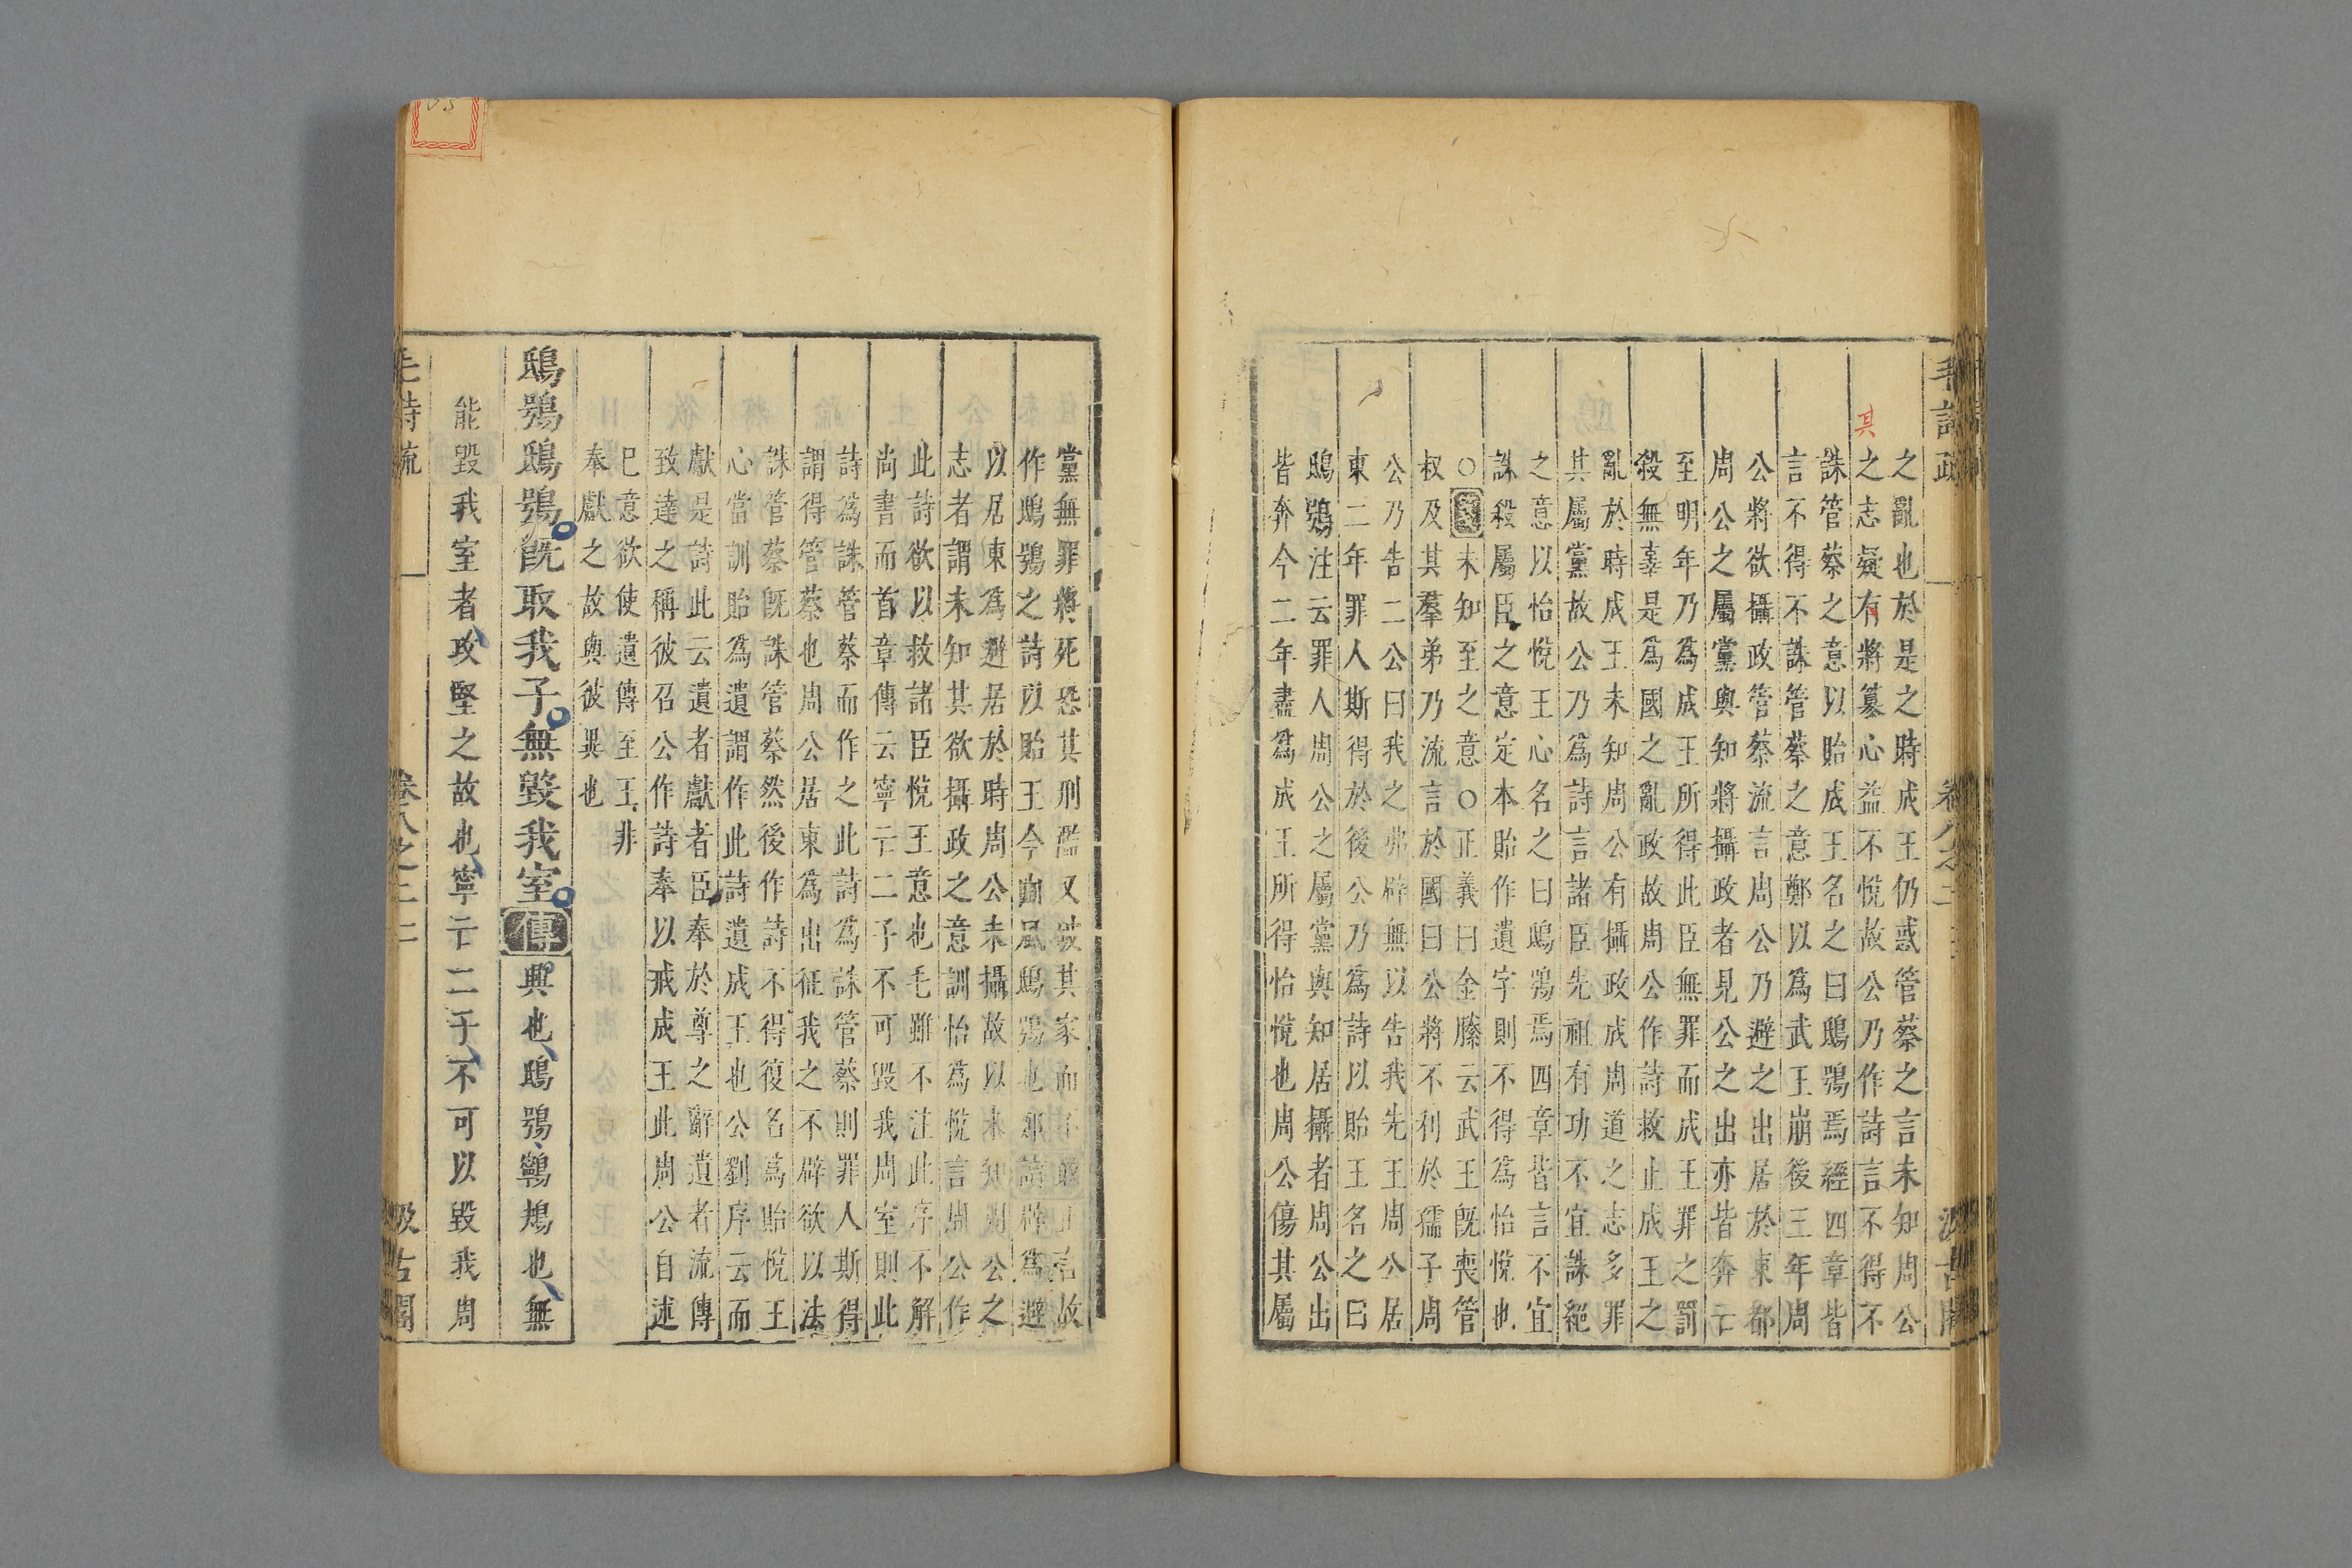 之亂也於是之時成王仍惑管蔡之言未知周公
之志疑有將簒心益不悅故公乃作詩言不得不
其
誅管蔡之意以貽成王名之曰鴟鴞焉經四章皆
言不得不誅管蔡之意鄭以為武王崩後三年周
公將欲攝政管蔡流言周公乃避之出居於東都
周公之屬黨與知將攝政者見公之出亦皆奔亡
至明年乃為成王所得此臣無罪而成王罪之罰
殺無辜是為國之亂政故周公作詩救止成王之
亂於時成王未知周公有攝政成周道之志多罪
其屬黨故公乃為詩言諸臣先祖有功不宜誅絕
之意以怡悅王心名之曰鴟鴞焉四章皆言不宜
誅殺屬臣之意定本貽作遺字則不得為怡悅也
○未知至之意○正義曰金縢云武王旣喪管
叔及其羣弟乃流言於國曰公將不利於孺子周
公乃告二公曰我之弗辟無以告我先王周公居
東二年罪人斯得於後公乃為詩以貽王名之曰
鴟鴞注云罪人周公之屬黨與知居攝者周公出
皆奔今二年盡為成王所得怡悅也周公傷其屬
黨無罪將死恐其刑濫又破其家而不敢正言故
作鴟鴞之詩以貽王今豳風鴟鴞也鄭讀辟為避
以居東為避居於時周公未攝故以未知周公之
志者謂未知其欲攝政之意訓怡為悅言周公作
此詩欲以救諸臣悅王意也毛雖不注此序不解
尚書而首章傳云寧亡二子不可毀我周室則此
詩為誅管蔡而作之此詩為誅管蔡則罪人斯得
謂得管蔡也周公居東為出征我之不辟欲以法
誅管蔡旣誅管蔡然後作詩不得復名為貽悅王
心當訓貽為遺謂作此詩遺成王也公劉序云而
獻是詩此云遺者獻者臣奉於尊之辭遺者流傳
致達之稱彼召公作詩奉以戒成王此周公自述
巳意欲使遺傳至王非
奉獻之故與彼異也
鴟鴞鴟鴞旣取我子無毀我室傳興也鴟鴞鸋鴂也無
能毀我室者攻堅之故也寧亡二子不可以毀我周
毛詩疏 卷八之二 二 汲古閣